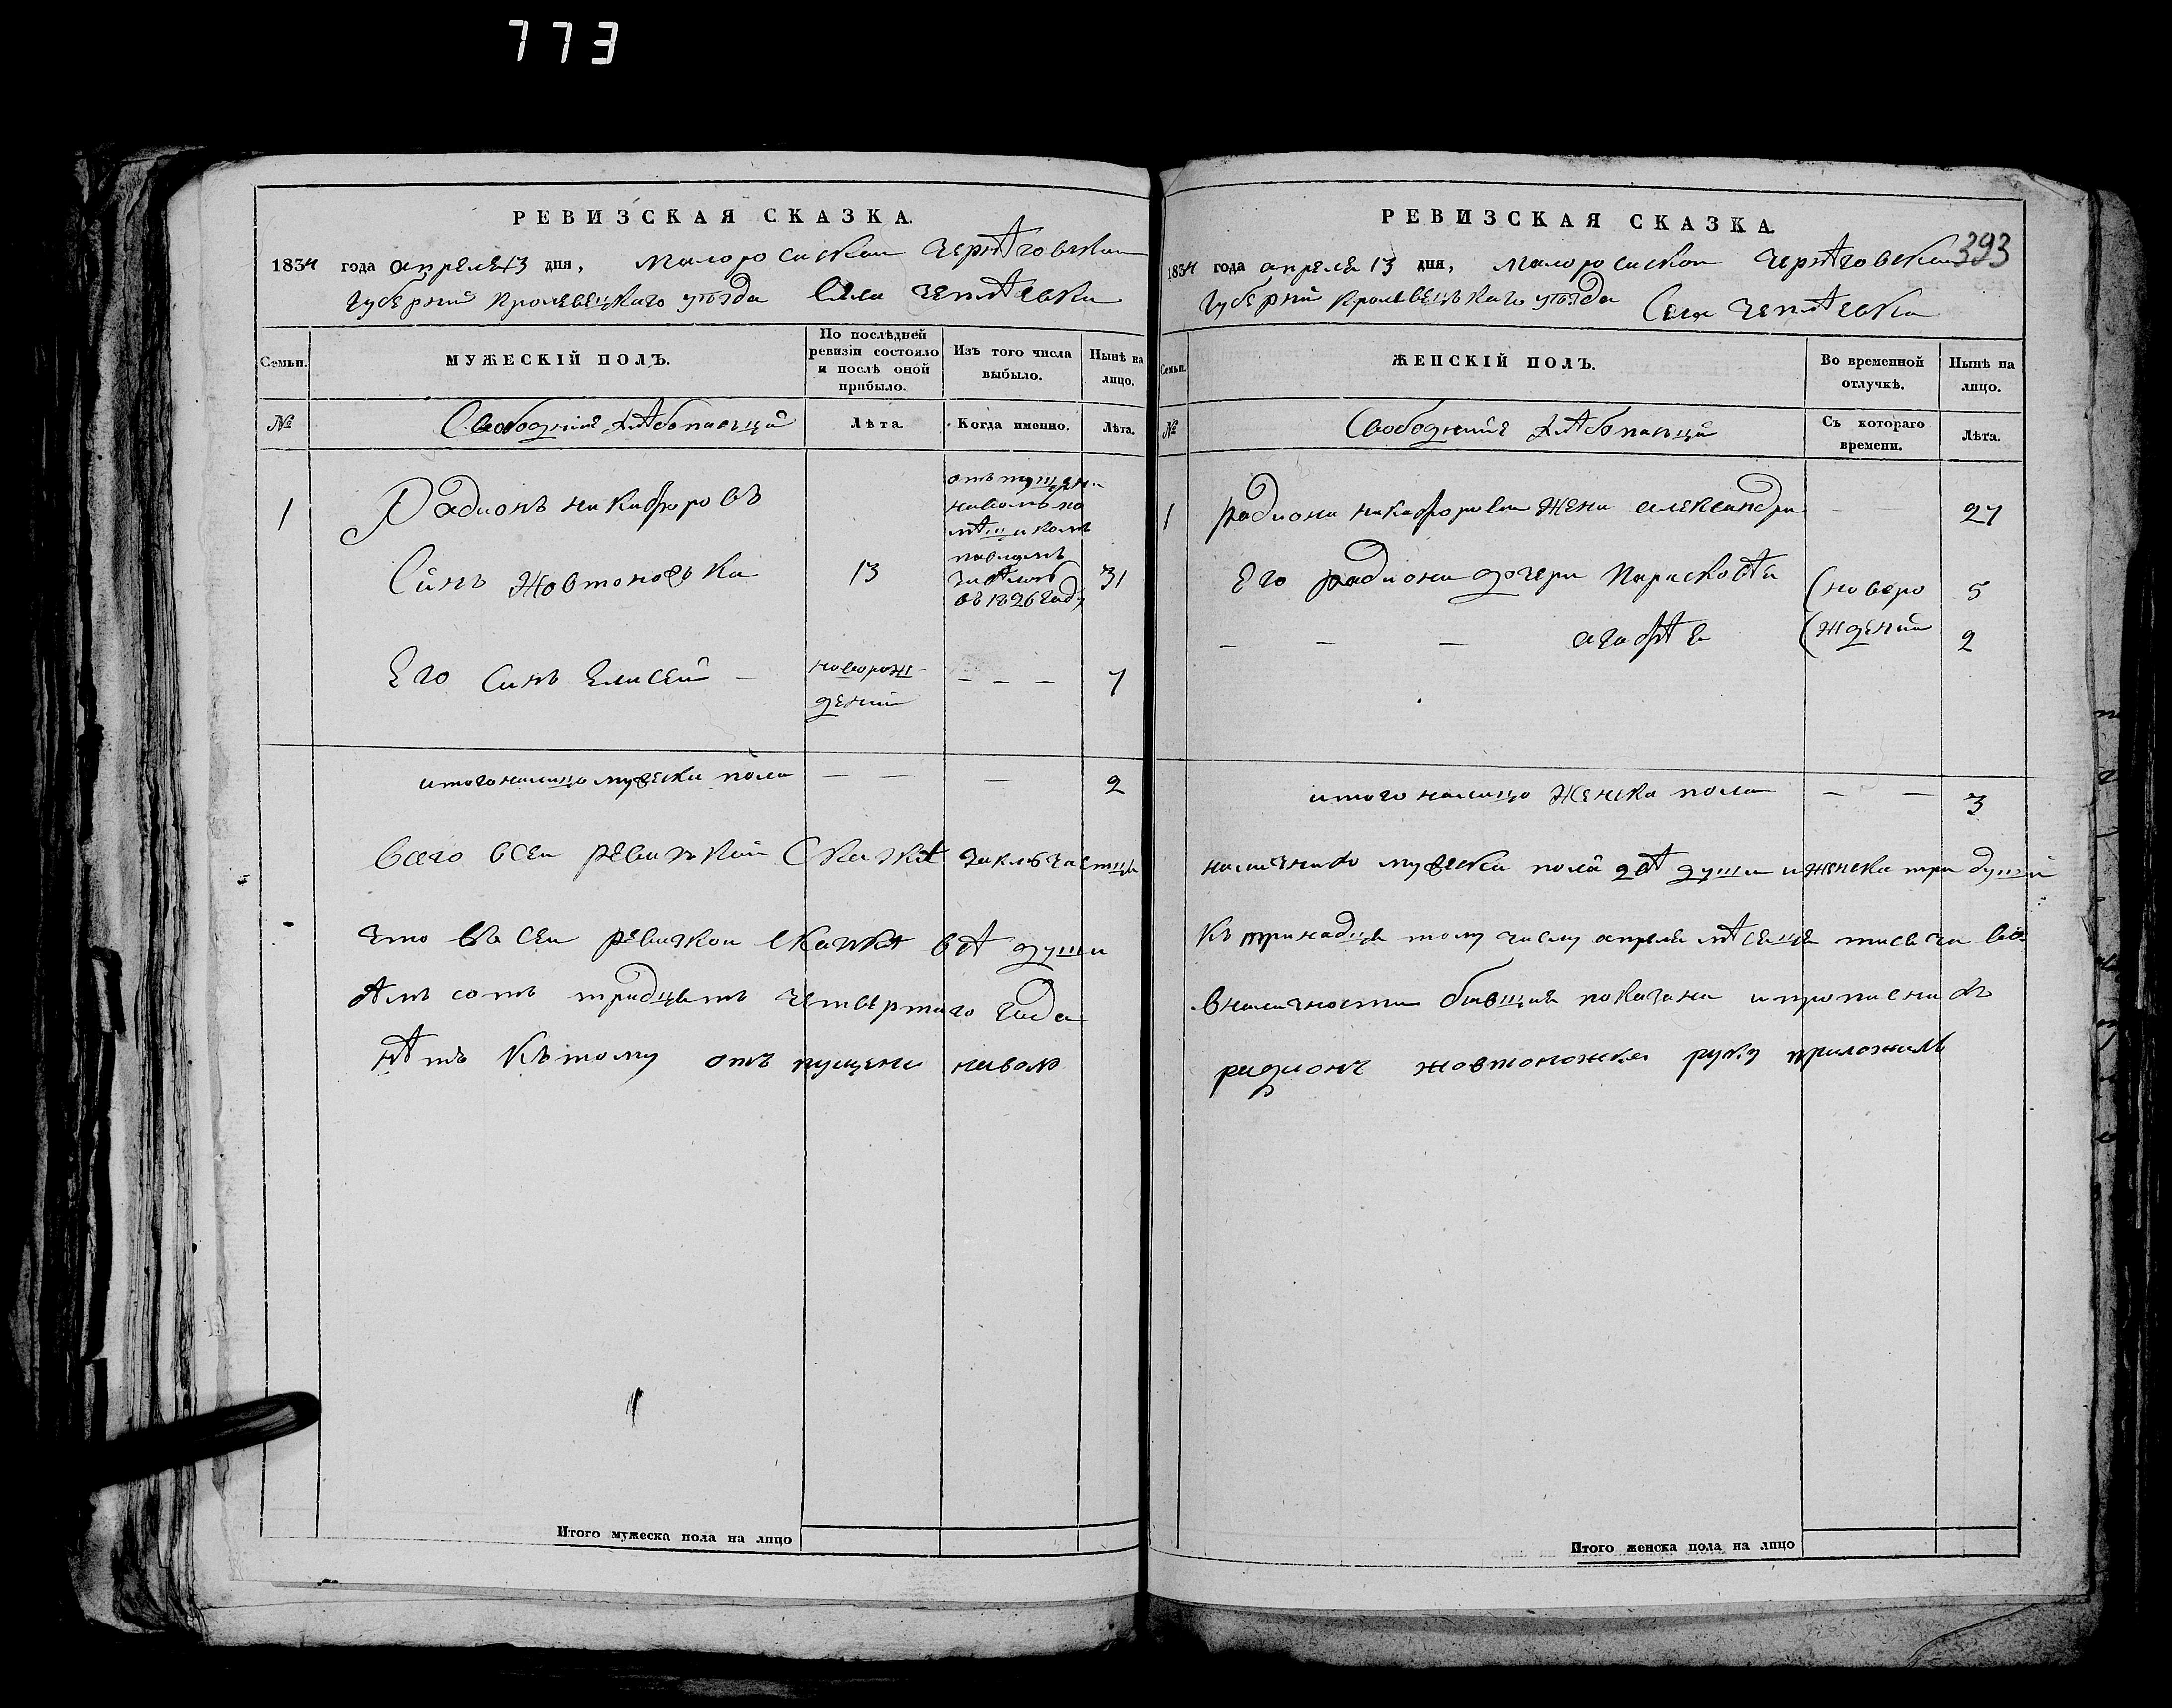 773
РЕВИЗСКАЯ СКАЗКА.
1834 года апреля 13 дня, малоросиской Чернѣговской
губерний Кролевецкаго уѣзда Села Чеплѣевки
Семьи.
МУЖЕСКІЙ ПОЛЪ.
По послѣдней ревизіи состояло и послѣ оной прибыло.
Изъ того числа выбыло.
Нынѣ на лицо.
№
Свободние хлѣбопасци
Лѣта.
Когда именно.
Лѣта.
1
Радионъ никифоровъ
Синъ жовтоножка
13
31
въ 1826 году
Его синъ Елисей —
новорож
дений
— — —
7
итого налицо мужеска пола
— — —
2
всего всеи ревизкой Сказкѣ
что въ сеи ревизкои сказкѣ всѣ души
ѣмъ сотъ тридцать четвертаго года
нѣтъ къ тому отъ пущени наволю
Итого мужеска пола на лицо
РЕВИЗСКАЯ СКАЗКА.
393
1834 года апреля 13 дня, малоросискои Чернѣговской
губерний Кролевецъкаго уѣзда Села Чеплѣевки
Семьи.
ЖЕНСКІЙ ПОЛЪ.
Во временной отлучкѣ.
Нынѣ на лицо.
№
Свободние хлѣбопасци
Съ котораго времени.
Лѣта.
1
радиона никифорова жена александра
—
27
Его радиона дочери Парасковѣя
(новоро
5
— — агафѣя
(ждений
2
итого налицо женска пола
— —
3
наличнихъ мужеска пола двѣ души и женска три души
къ тринадця тому числу апреля мѣсяця тисяча во
вналичности бивщие показани и прописанихъ
радионъ жовтоножка руку приложилъ
Итого женска пола на лицо